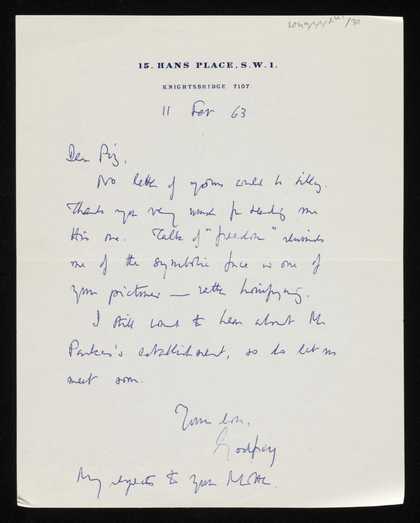 15, HANS PLACE, S.W.1.
KNIGHTSBRIDGE 7107
11 Feb 63
Dear Piz,
No letter of yours could be silly.
Thank you very much for sending me
this one. Talk of "freedom" reminds
me of the symbolic face in one of
your pictures — rather horrifying.
I still want to hear about Mr
Parker's establishment, so do let us
meet soon.
Yours ever,
Godfrey
My regards to your Mother.